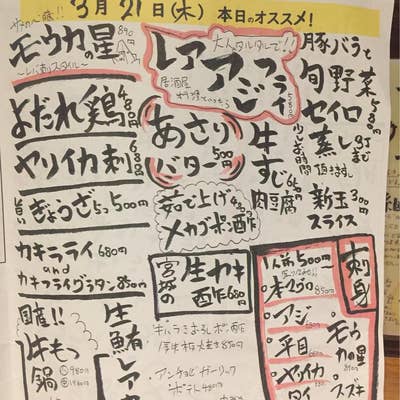 3月21日(木) 本日のオススメ!
モウカの星
〜レバ刺スタイル〜
890円
よだれ鶏 480円
ヤリイカ刺 680円
旨い ぎょうざ5つ500円
カキフライ 680円
and
カキフライグラタン 850円
国産!! 牛もつ鍋
大人タルタルで!!
レアアジフライ
居酒屋
あさりバター 500円
茹で上げ
メカブポン酢
宮城の 生カキ酢 680円
生鮪レアカ
牛すじ肉豆腐
豚バラと
旬野菜
セイロ蒸し 580円
少しお時間頂きます
新玉スライス 300円
刺身
1人前 500円〜
本マグロ 850円
アジ
平目
ヤリイカ
タイ
モウカの星
スズキ
厚岸
アンチョビガーリック
ポテト 480円